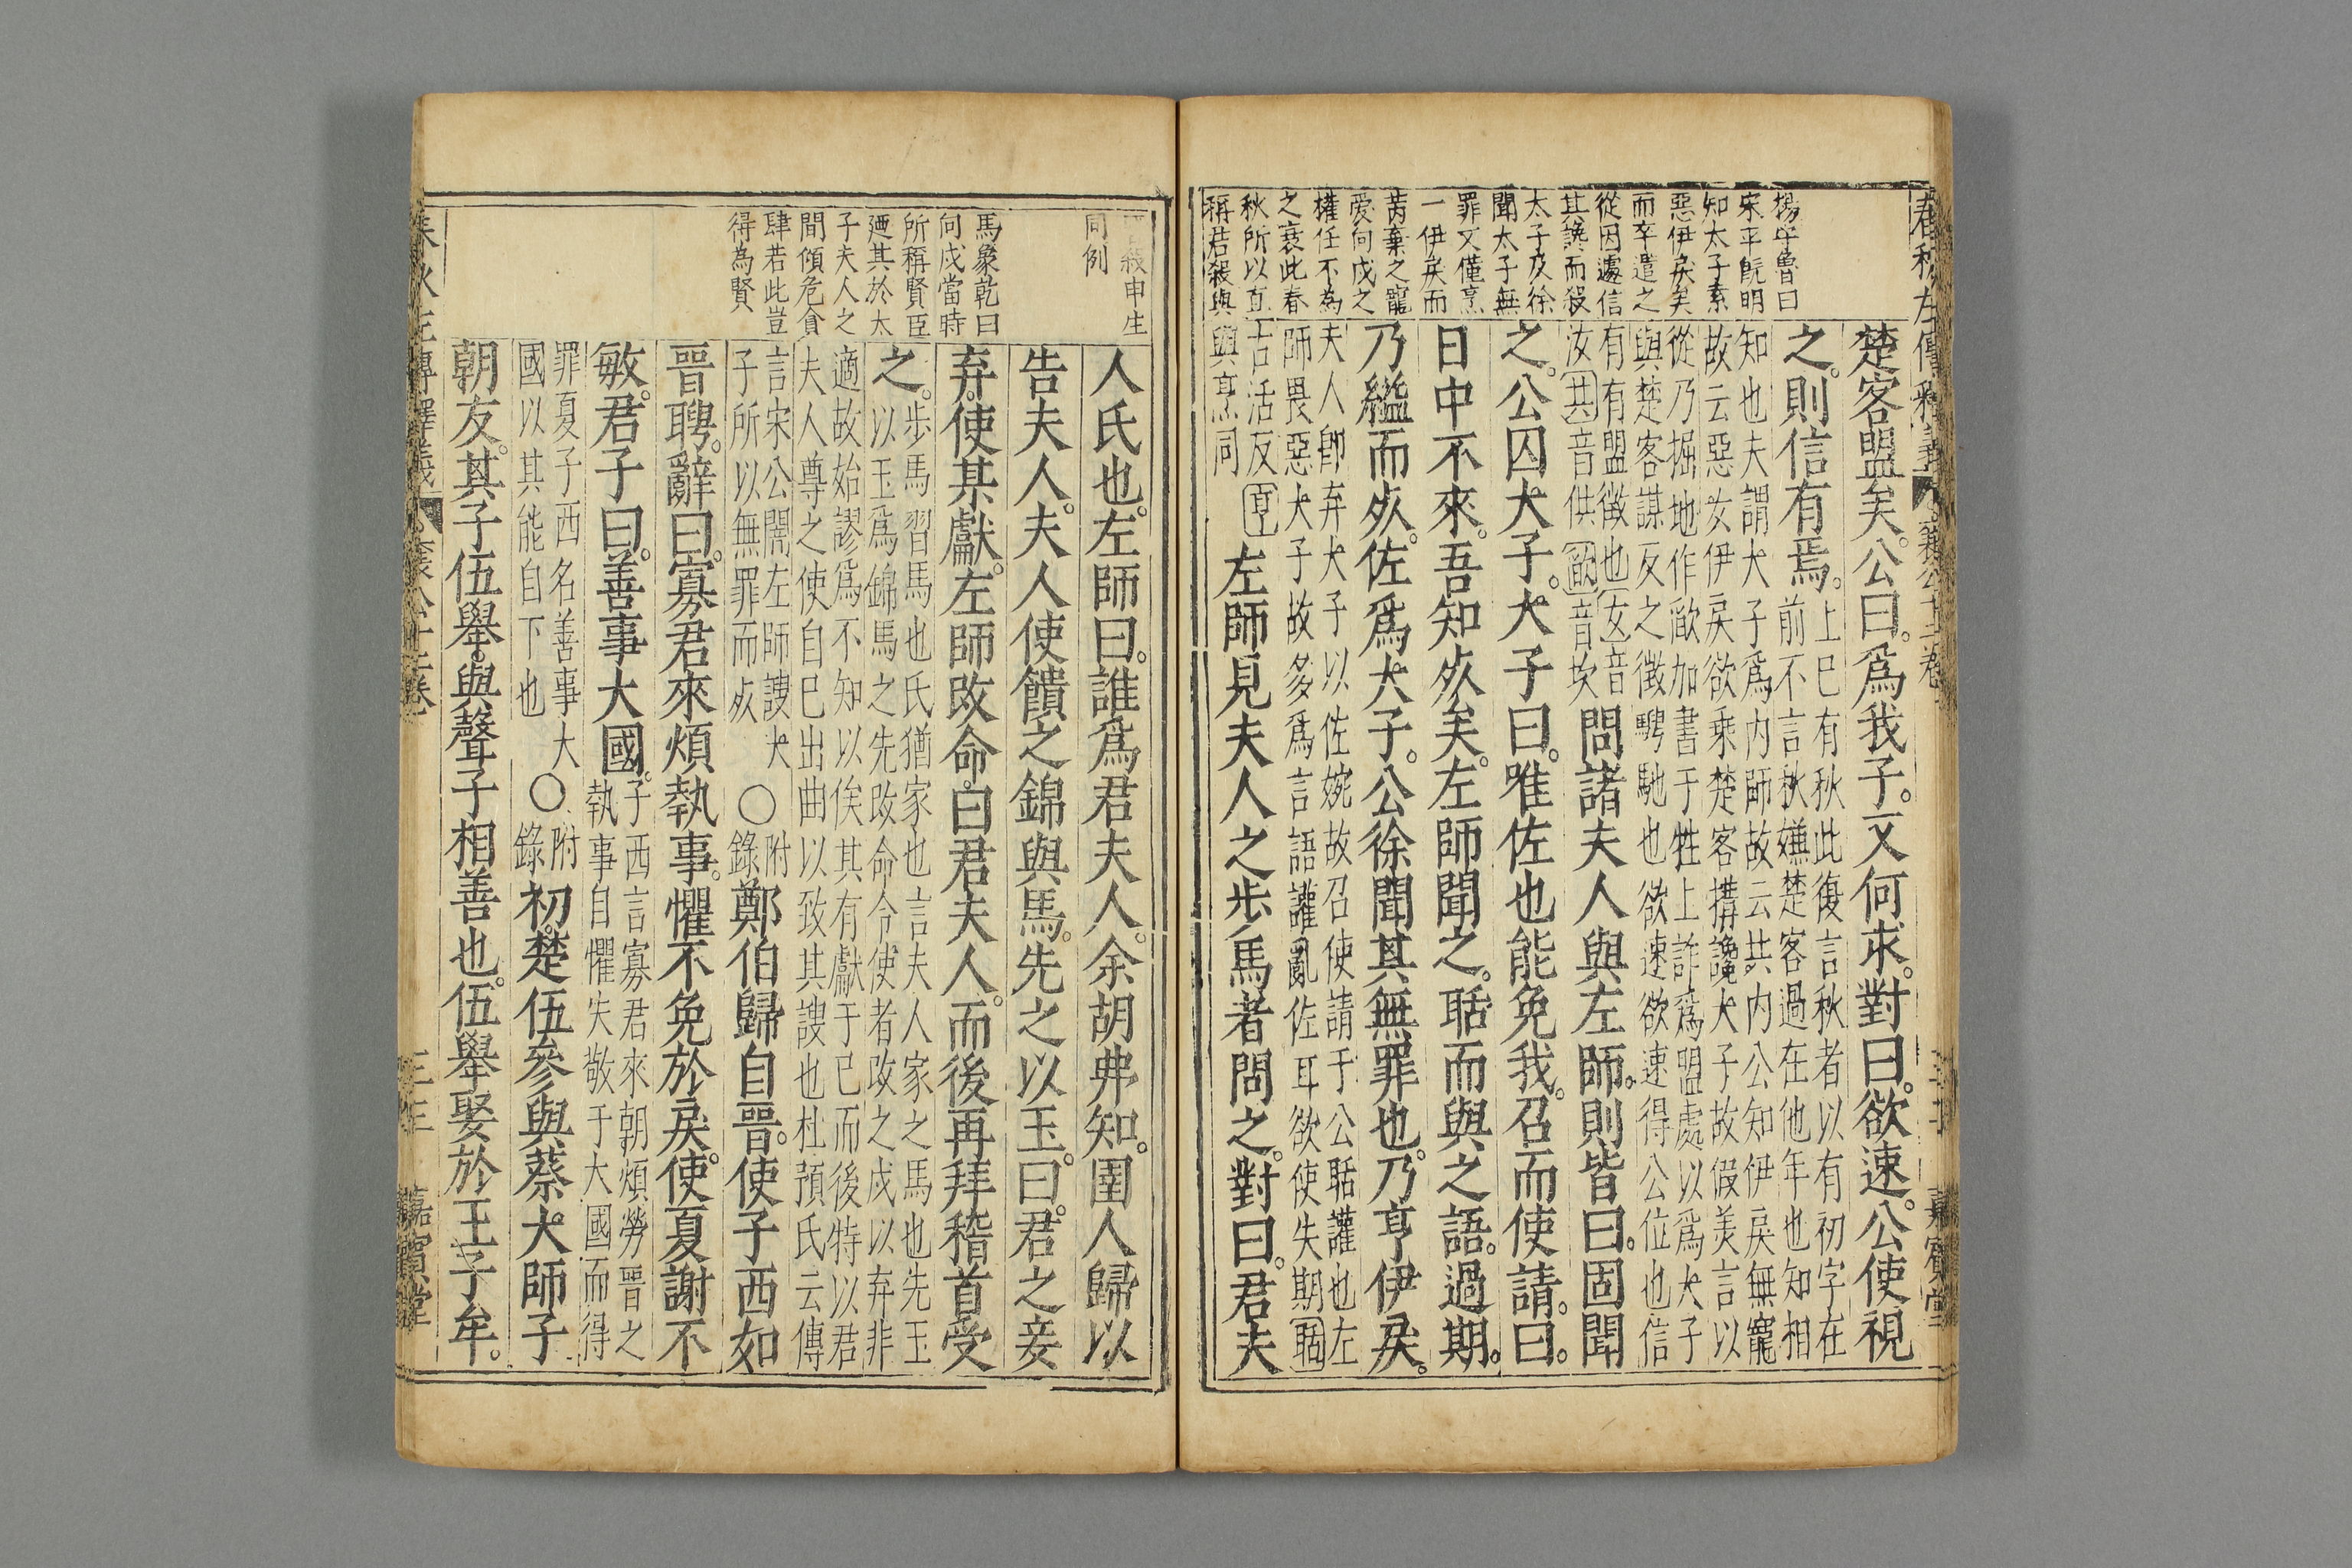 楊午魯曰
宋平既明
知太子素
惡伊戾矣
而卒遣之
從因遽信
其讒而殺
太子及徐
聞太子無
罪又僅烹
一伊戾而
芮棄之寵
愛向戌之
權任不為
之衰此春
秋所以直
稱君殺與
楚客盟矣。公曰。爲我子。又何求。對曰。欲速。公使視
之。則信有焉。
上巳有秋此復言秋者以有初字在
前不言秋嫌楚客過在他年也知相
知也夫謂大子爲內師故云共內公知伊戾無寵
故云惡女伊戾欲乘楚客搆讒大子故假美言以
從乃掘地作歃加書于牲上詐爲盟處以爲大子
與楚客謀反之徵騁馳也欲速欲速得公位也信
有有盟徵也女音
汝共音供歃音坎
問諸夫人與左師。則皆曰。固聞
之。公囚大子。大子曰。唯佐也能免我。召而使請。曰。
日中不來。吾知死矣。左師聞之。聒而與之語。過期。
乃縊而死。佐爲大子。公徐聞其無罪也。乃亨伊戾。
夫人卽弃大子以佐婉故召使請于公聒讙也左
師畏惡大子故多爲言語讙亂佐耳欲使失期聒
古活反亨
與烹同
左師見夫人之步馬者問之。對曰。君夫
殺申生
同例
馬象乾曰
向戌當時
所稱賢臣
廼其於太
子夫人之
間傾危貪
肆若此豈
得為賢
人氏也。左師曰。誰爲君夫人。余胡弗知。圉人歸以
告夫人。夫人使饋之錦與馬。先之以玉。曰。君之妾
弃。使某獻。左師改命。曰君夫人。而後再拜稽首受
之。
步馬習馬也氏猶家也言夫人家之馬也先玉
以玉爲錦馬之先改命令使者改之戌以弃非
適故始謬爲不知以俟其有獻于已而後特以君
夫人尊之使自巳出曲以致其諛也杜預氏云傳
言宋公闇左師諛大
子所以無罪而死
〇附
錄
鄭伯歸自晉。使子西如
晉聘。辭曰。寡君來煩執事。懼不免於戾。使夏謝不
敏。君子曰。善事大國。
子西言寡君來朝煩勞晉之
執事自懼失敬于大國而得
罪夏子西名善事大
國以其能自下也
〇附
錄
初。楚伍參與蔡大師子
朝友。其子伍舉。與聲子相善也。伍舉娶於王子牟。